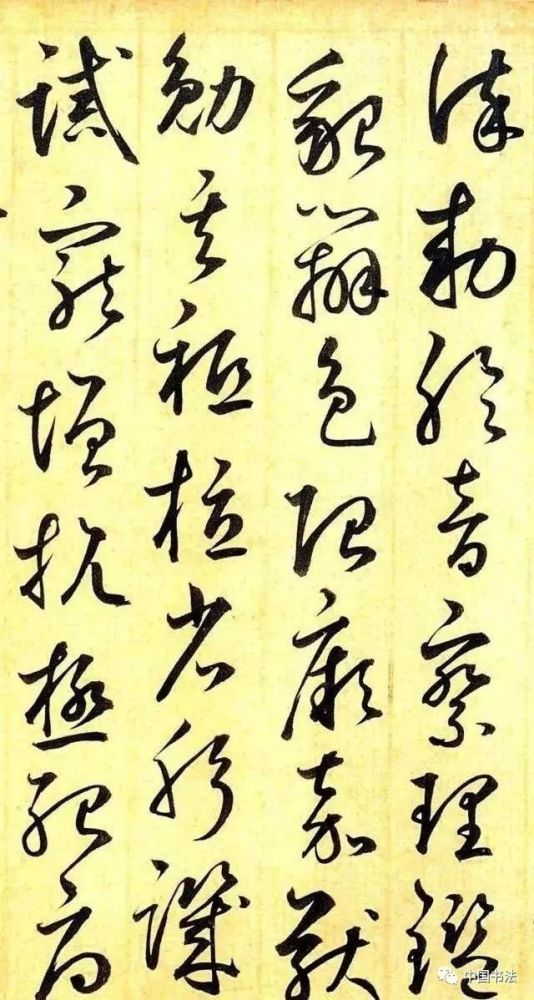 謹敕聆音察理鑑
貌辨色貽厥嘉猷
勉其祗植省躬譏
誡寵增抗極殆辱
中国书法